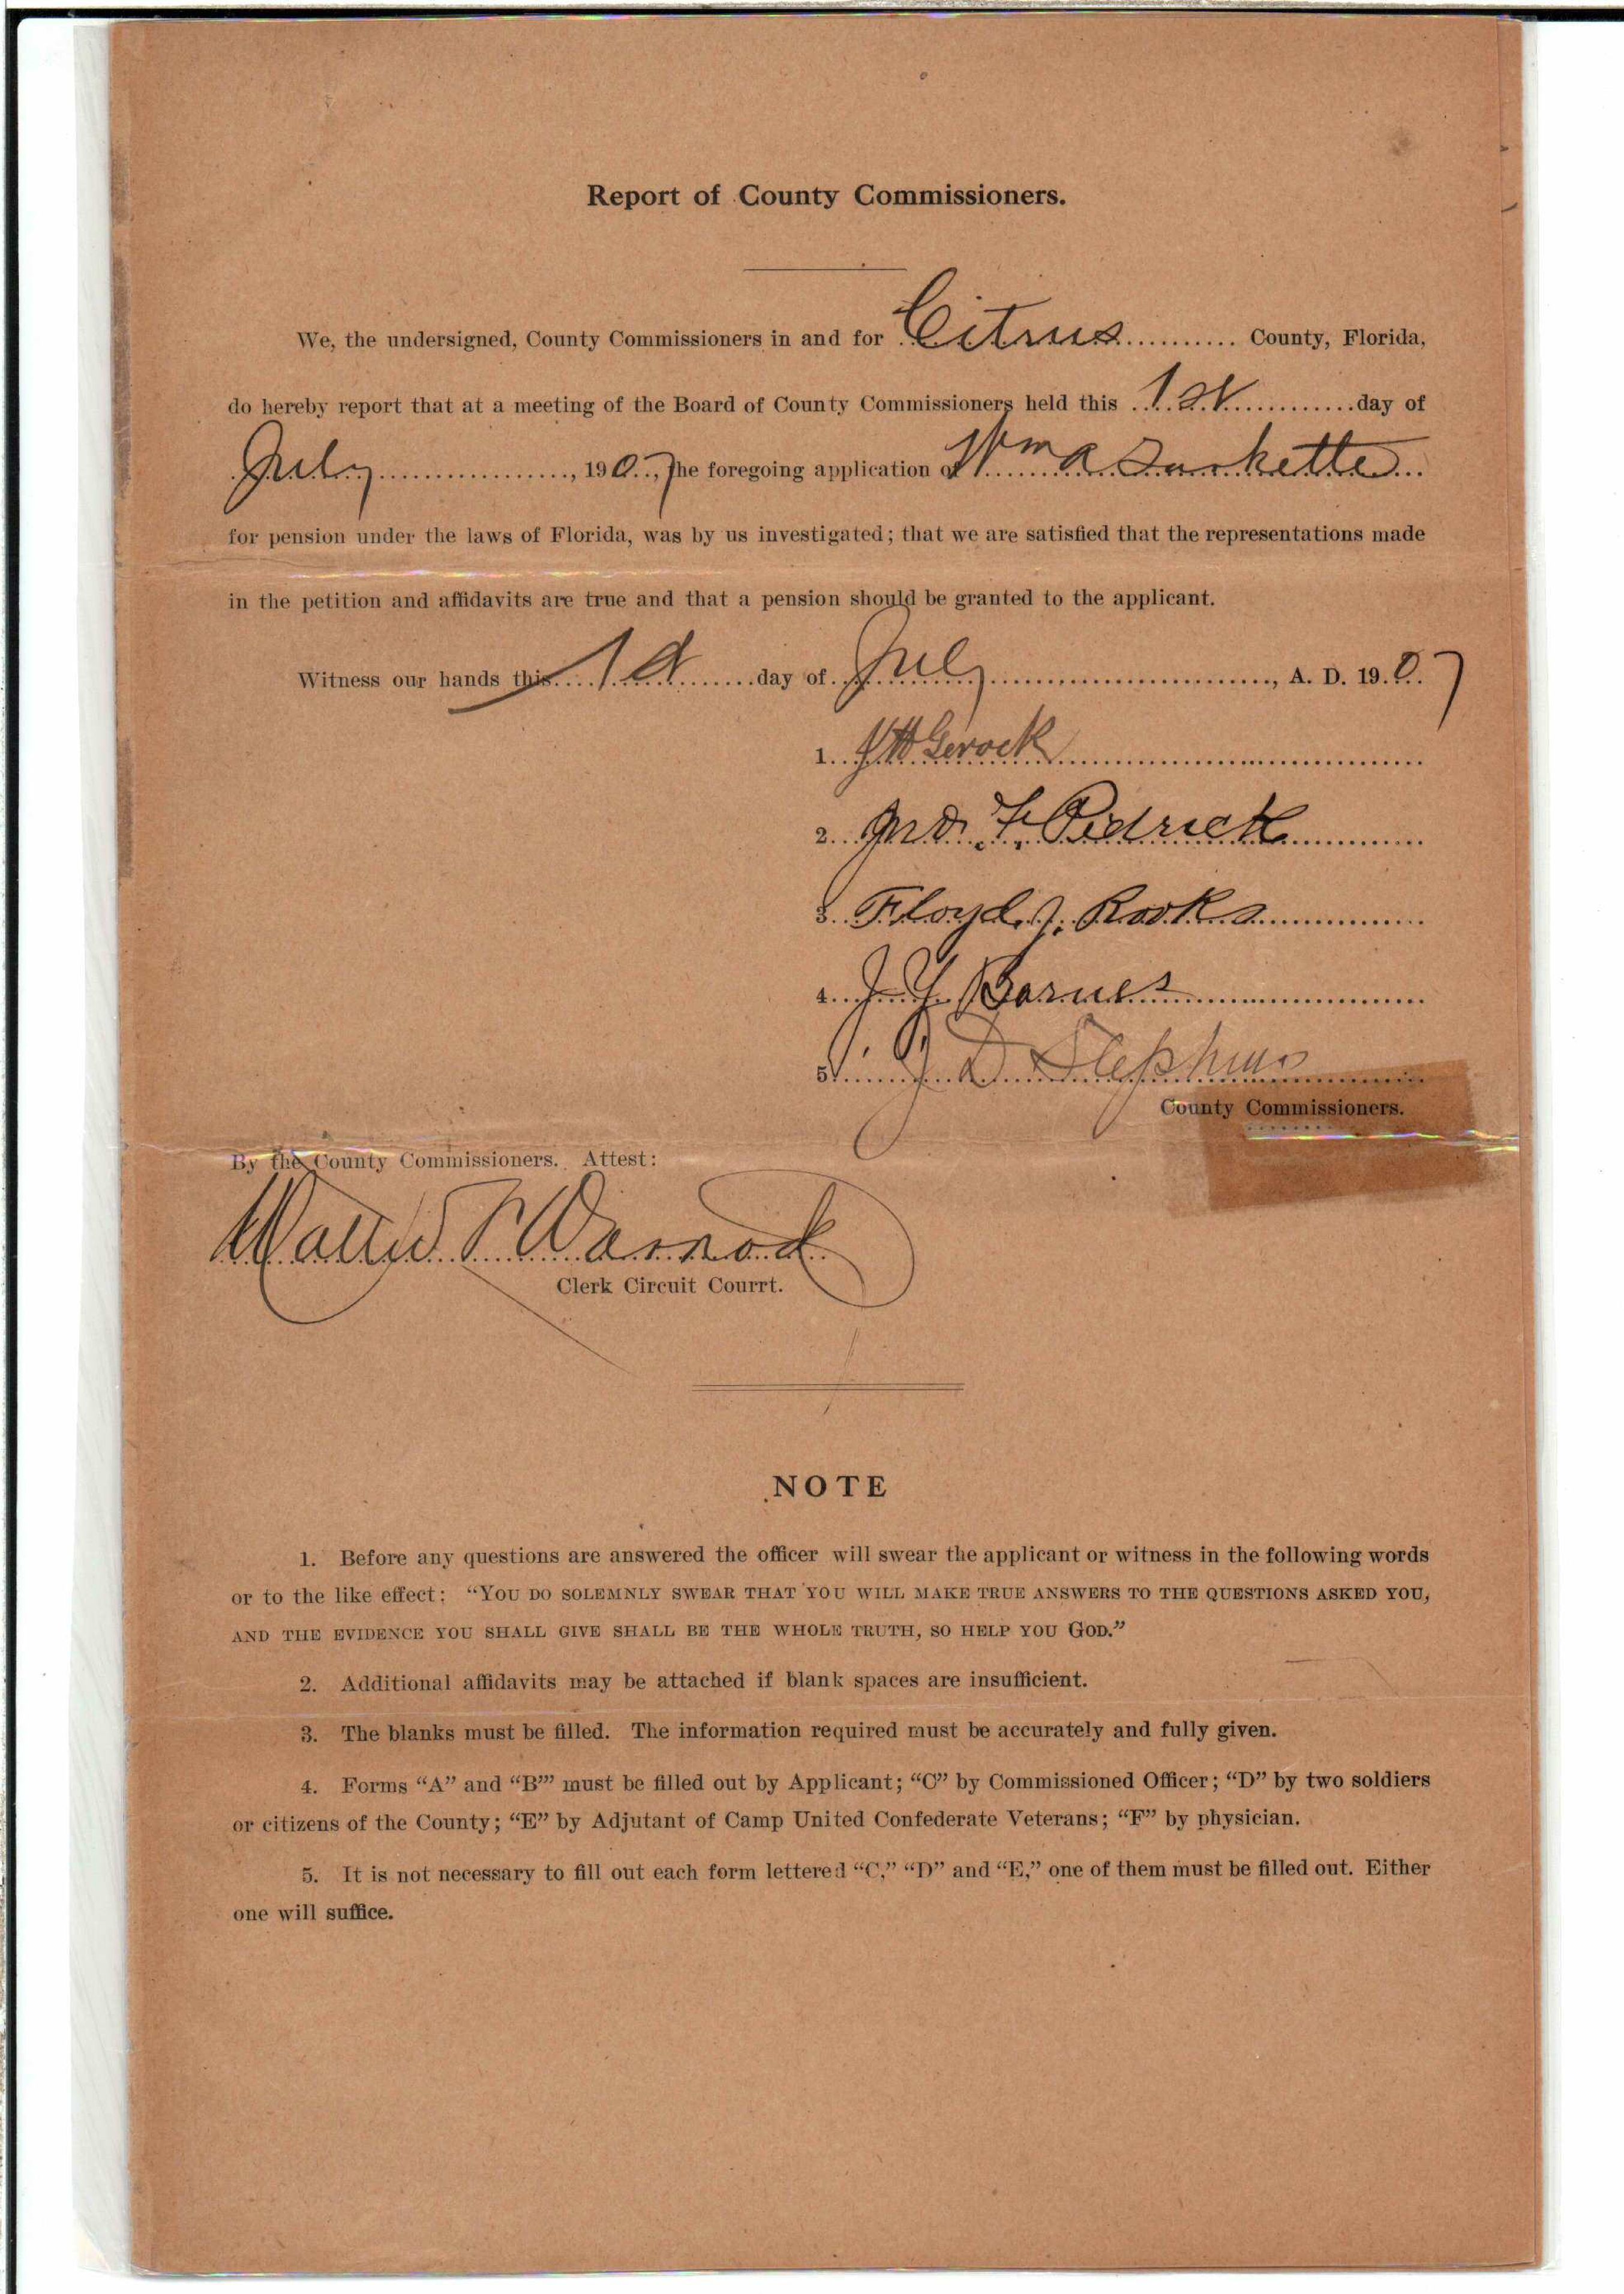 Report of County Commissioners.
We, the undersigned, County Commissioners in and for Citrus County, Florida,
do hereby report that at a meeting of the Board of County Commissioners held this 1st day of
July, 1907, the foregoing application of Wm A
for pension under the laws of Florida, was by us investigated; that we are satisfied that the representations made
in the petition and affidavits are true and that a pension should be granted to the applicant.
Witness our hands this 1st day of July, A. D. 1907
1. Gerock
2. F. Pedrick
3. Floyd Rooks
4. J. Y. Barnes
5. J. D. Stephens
County Commissioners.
By the County Commissioners. Attest:
Walter Warnock
Clerk Circuit Courrt.
NOTE
1. Before any questions are answered the officer will swear the applicant or witness in the following words
or to the like effect: “YOU DO SOLEMNLY SWEAR THAT YOU WILL MAKE TRUE ANSWERS TO THE QUESTIONS ASKED YOU,
AND THE EVIDENCE YOU SHALL GIVE SHALL BE THE WHOLE TRUTH, SO HELP YOU GOD.”
2. Additional affidavits may be attached if blank spaces are insufficient.
3. The blanks must be filled. The information required must be accurately and fully given.
4. Forms “A” and “B’” must be filled out by Applicant; “C” by Commissioned Officer; “D” by two soldiers
or citizens of the County; “E” by Adjutant of Camp United Confederate Veterans; “F” by physician.
5. It is not necessary to fill out each form lettered “C,” “D” and “E,” one of them must be filled out. Either
one will suffice.